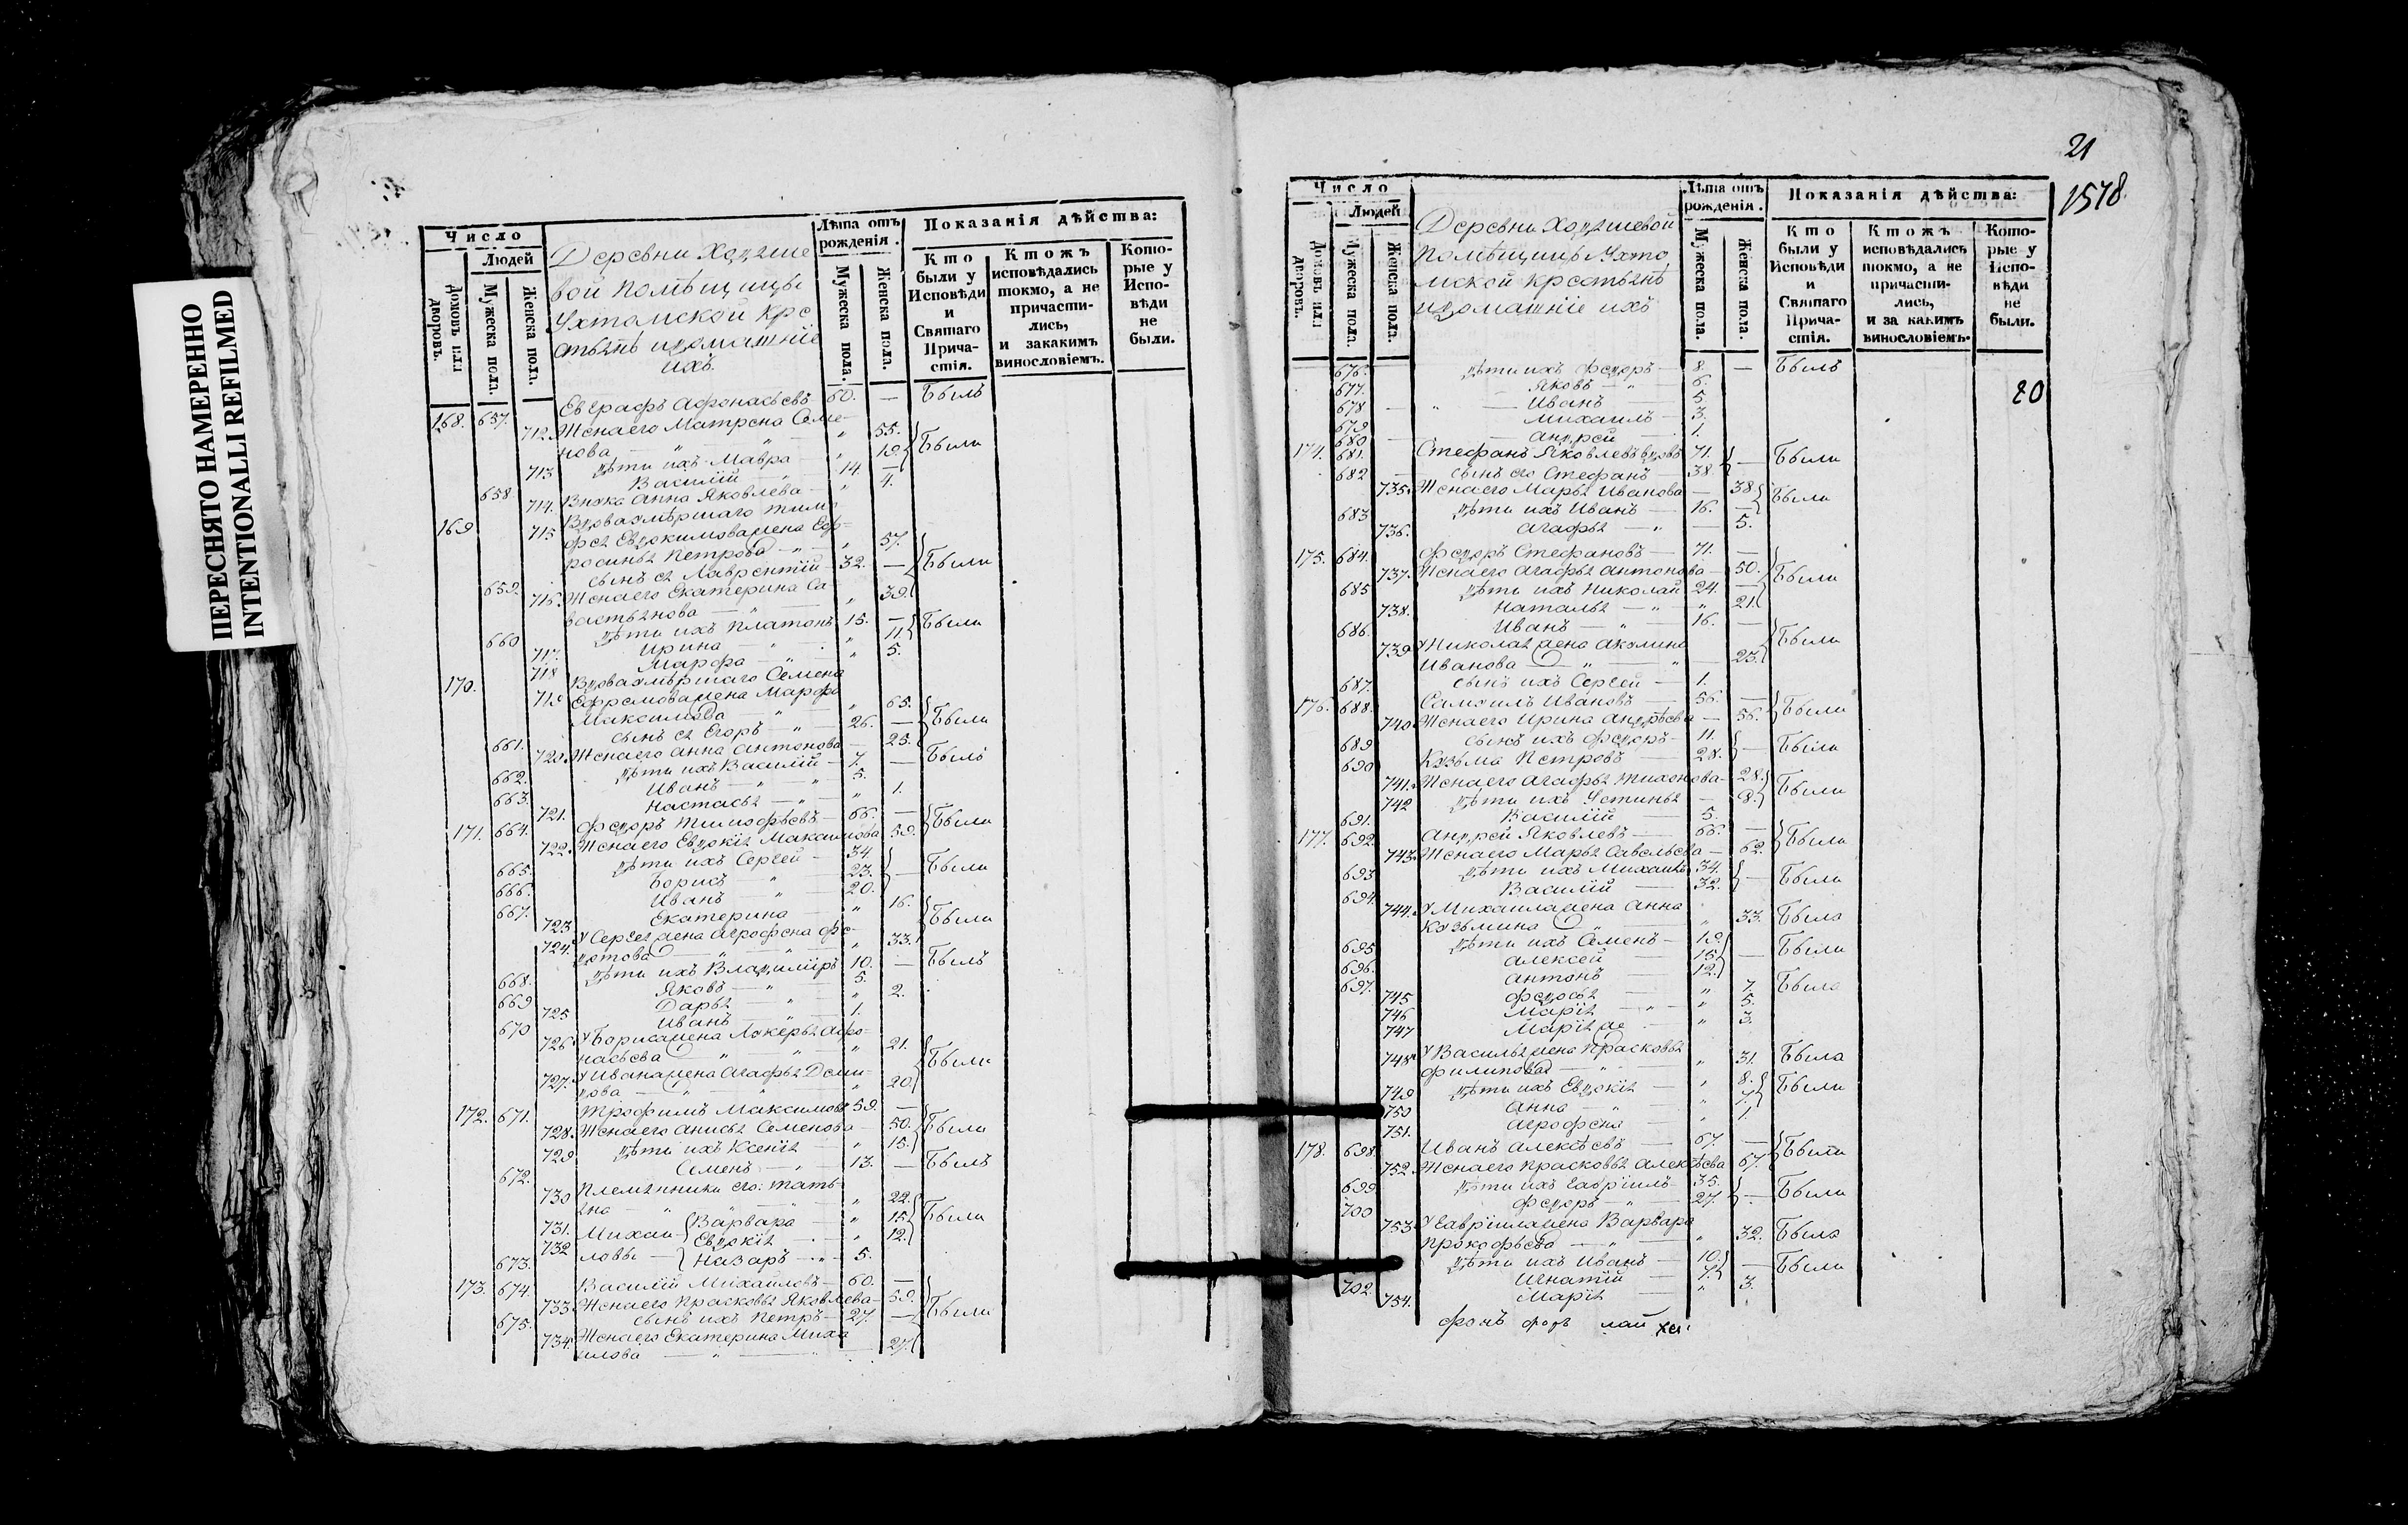 ПЕРЕСНЯТО НАМЕРЕННО
INTENTIONALLI REFILMED
Число
Людей
Домовъ или дворовъ.
Мужеска пола.
Женска пола.
Деревни Ходяше
вой помѣщицы
Ухтомской кре
стьянъ идомашніе
ихъ.
Лѣта отъ рожденія.
Мужеска пола.
Женска пола.
Показанія дѣйства:
Кто были у Исповѣди и Святаго Причастія.
Ктожъ исповѣдались токмо, а не причастились, и закакимъ винословіемъ.
Которые у Исповѣди не были.
168. 657. Евграфъ Афонасьевъ 60. — Былъ
712. Жена его Матрена Семе-
нова " 55. Были
713 дѣти ихъ Мавра " 19
658. Василій 14 —
714. Внука Анна Яковлева " 4.
169 715 Вдова умѣршаго Тимо
фея Евдокимова жена Еф-
росинья Петрова " 57. Были
659. сынъ ея Лаврентій 32. —
716. Жена его Екатерина Са-
вастьянова " 39.
660 дѣти ихъ Платонъ 15. — Были
717. Ирина " 11
718 Марфа " 5.
170. 719 Вдова умѣршаго Семена
Ефремова жена Марфа
Максимова " 65. Были
661. сынъ ея Егоръ 26. —
720. Жена его Анна Антонова — 25.
662. дѣти ихъ Василій 7. — Былъ
663. Иванъ 5.
721. Настасья " 1.
171. 664. Федоръ Тимофѣевъ 66. — Были
722. Жена его Евдокія Максимова 59.
665. дѣти ихъ Сергей 34
666. Борисъ 23. — Были
667. Иванъ 20.
723 Екатерина " 16.
724. У Сергея жена Агрофена Фе-
дотова " 33. Были
668. дѣти ихъ Владимиръ 10. — Былъ
669 Яковъ 5.
725 Дарья " 2.
670 Иванъ 1.
726. У Бориса жена Лукерья Афо-
насьева " 21. Были
727. У Ивана жена Агафья Деми-
дова " 20
172. 671. Трофимъ Максимовъ 59. —
728. Жена его Анисья Семенова 50. Были
729 дѣти ихъ Ксенія " 15.
672. Семенъ 13. — Былъ
730 Племянники его: Тать-
яна " 22.
731. Михаи- Варвара " 15 Были
732 ловы Евдокія " 12.
673. Назаръ 5.
173. 674. Василій Михайловъ 60. —
733. Жена его Прасковья Яковлева 59. Были
675. сынъ ихъ Петръ 27. —
734. Жена его Екатерина Миха
илова 27.
21
1578.
Число
Людей
Домовъ или дворовъ.
Мужеска пола.
Женска пола.
Деревни Ходяшевой
Помѣщицы Ухто
мской крестьянъ
идомашніе ихъ
Лѣта отъ рожденія.
Мужеска пола.
Женска пола.
Показанія дѣйства:
Кто были у Исповѣди и Святаго Причастія.
Ктожъ исповѣдались токмо, а не причастились, и за какимъ винословіемъ.
Которые у Исповѣди не были.
676. дѣти ихъ Федоръ 8. — Былъ
677. Яковъ 6.
678 Иванъ 5.
679 Михаилъ 3.
680 Андрей 1.
174. 681. Стефанъ Яковлевъ вдовъ 71. — Были
682 сынъ его Стефанъ 38
735. Жена его Марья Иванова — 38 Были
683 дѣти ихъ Иванъ 16. —
736. Агафья — 5.
175. 684. Федоръ Стефановъ 71. —
737. Жена его Агафья Антонова — 50. Были
685 дѣти ихъ Николай 24. —
738. Наталья " 21.
686. Иванъ 16. —
739 У Николая жена Акулина
Иванова 23. Были
687. сынъ ихъ Сергей 1.
176. 688. Самуилъ Ивановъ 56. — Были
740 Жена его Ирина Андрѣева — 56.
689 сынъ ихъ Федоръ 11. — Были
690 Кузьма Петровъ 28.
741. Жена его Агафья Тихонова — 28 Были
742 дѣти ихъ Устинья — 8.
691. Василій 5.
177. 692. Андрей Яковлевъ 66. — Были
743. Жена его Марья Савельева — 62.
693 дѣти ихъ Михаилъ 34. — Были
694. Василій 32.
744. У Михаила жена Анна
Кузьмина " 33. Была
695 дѣти ихъ Семенъ 19
696. Алексей 15 — Были
697. Антонъ 12.
745 Федосья " 7. Была
746 Марія " 5.
747 Марія же " 3.
748 У Василья жена Прасковья
Филипова " 31. Была
749 дѣти ихъ Евдокія " 8. Были
750 Анна " 7.
751. Агрофена " 1
178. 698. Иванъ Алексѣевъ 67. — Были
752. Жена его Прасковья Алексѣева 67.
699 дѣти ихъ Гаврiилъ 35. — Были
700 Федоръ 27.
753 У Гаврiила жена Варвара
Прокофьева " 32. Была
дѣти ихъ Иванъ 10. — Были
702. Игнатій 7.
754. Марія " 3.